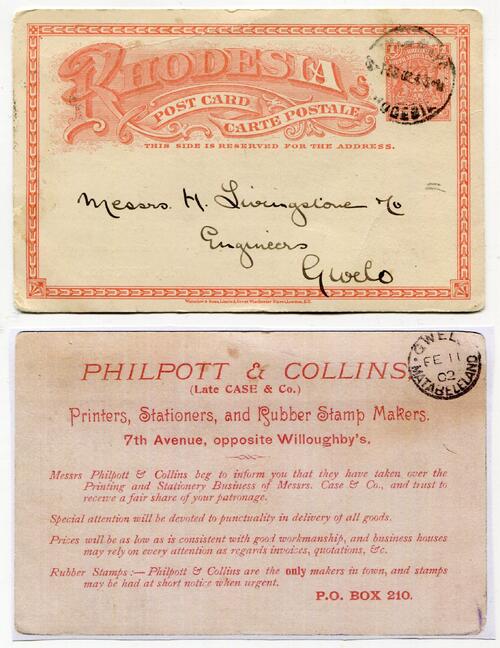 RHODESIA
POST CARD
CARTE POSTALE
THIS SIDE IS RESERVED FOR THE ADDRESS.
Messrs. H. Livingstone & Co
Engineers
Gwelo
PHILPOTT & COLLINS
(Late CASE & Co.)
GWEL
FE 11
02
MATABELELAND
Printers, Stationers, and Rubber Stamp Makers.
7th Avenue, opposite Willoughby's.
Messrs Philpott & Collins beg to inform you that they have taken over the
Printing and Stationery Business of Messrs. Case & Co., and trust to
receive a fair share of your patronage.
Special attention will be devoted to punctuality in delivery of all goods.
Prices will be as low as is consistent with good workmanship, and business houses
may rely on every attention as regards invoices, quotations, &c.
Rubber Stamps:— Philpott & Collins are the only makers in town, and stamps
may be had at short notice when urgent.
P.O. BOX 210.